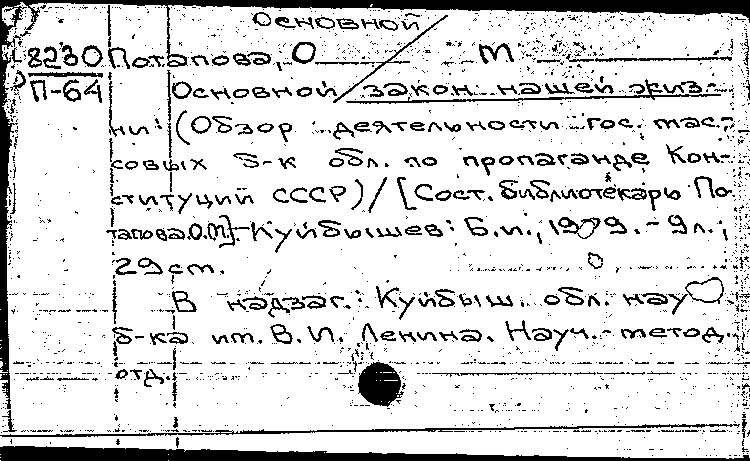 Основной
8230 Потапова, О М
П-64 Основной / закон нашей жиз-
ни: (Обзор деятельности гос. мас-
совых б-к обл. по пропаганде Кон-
ституций СССР) / [Сост. библиотекарь По-
тапова О.М]. - Куйбышев: Б.и., 1979. - 9л.;
29 см.
В надзаг.: Куйбыш. обл. науч
б-ка им. В. И. Ленина. Науч.-метод.
отд.